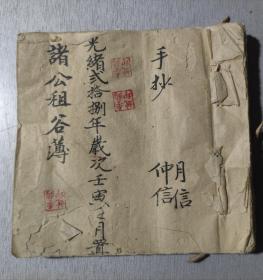 手抄
月信
仲信
光緒弍拾捌年歲次壬寅正月置
諸公祖谷薄